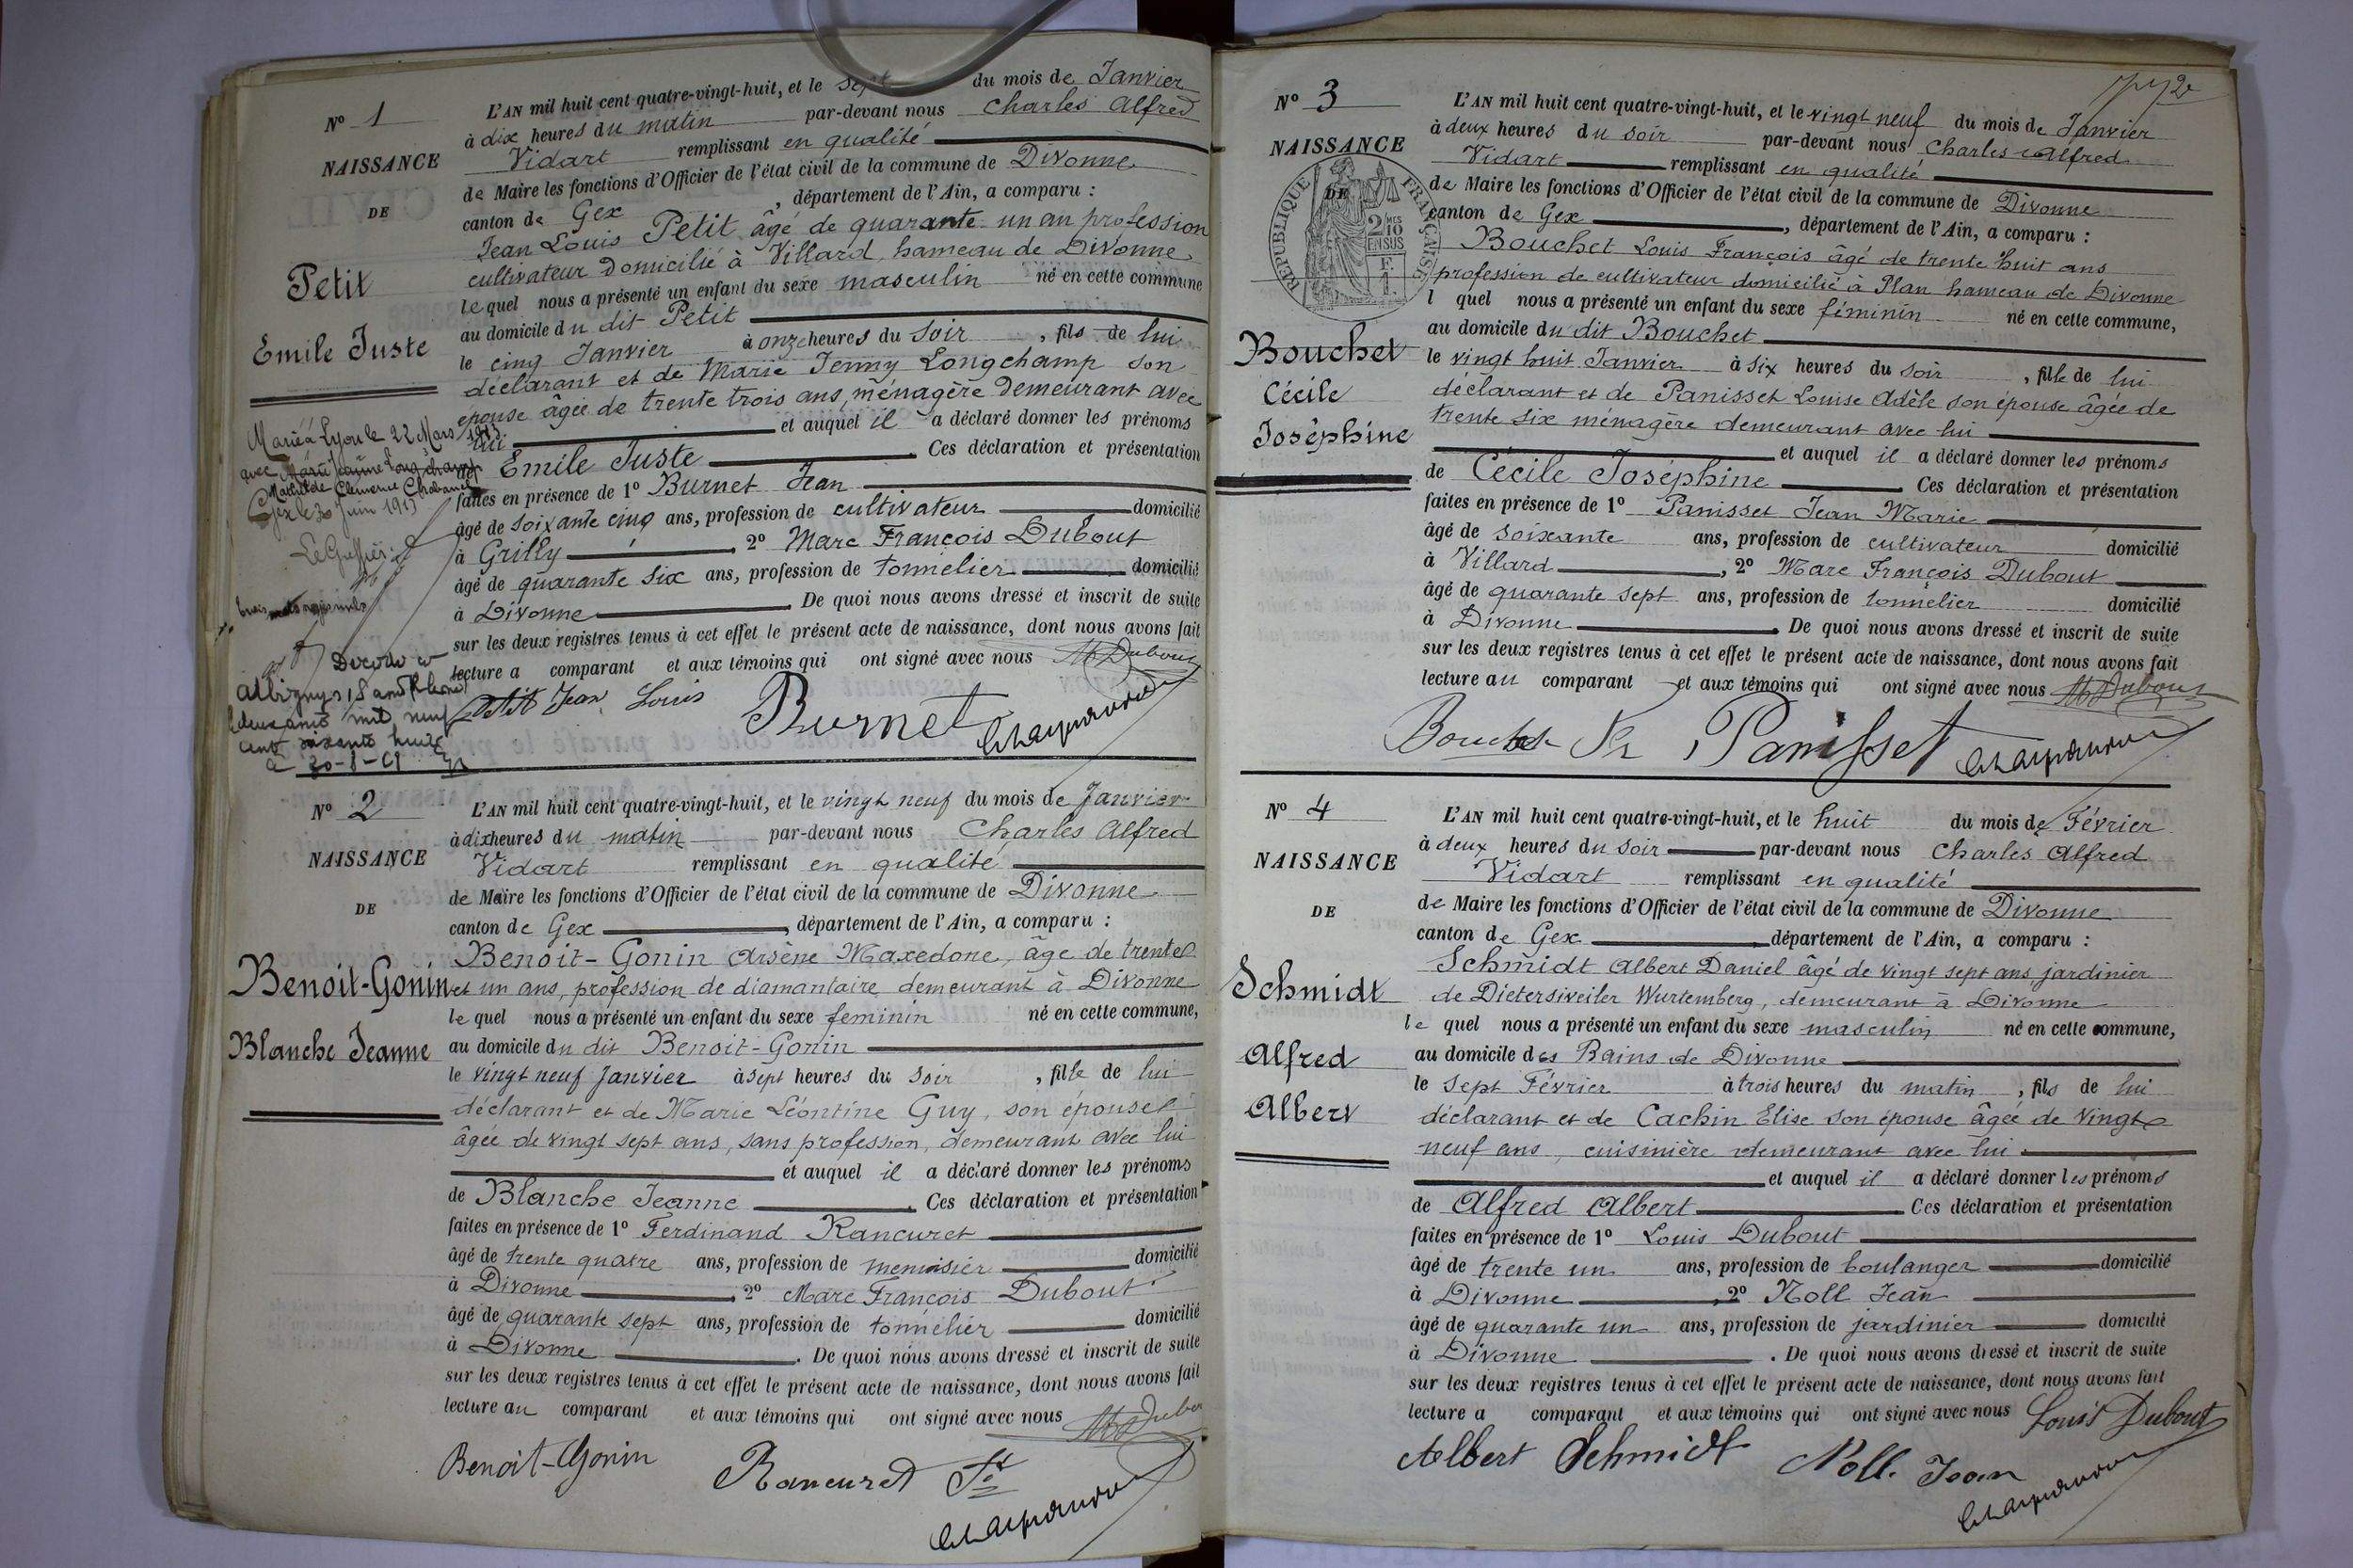 N° 1
NAISSANCE
DE
Petit
Emile Juste
Marié à Lyon le 22 Mars 1913
avec Marie Jeanne Longchamp
Mathilde Clémence Chabanel
Gex le 30 Juin 1913
Le Greffier
trois mots rayés nuls
Décédé à
Albigny s/ Saône (Rhône)
le deux août mil neuf
cent soixante huit
30-8-68
L'AN mil huit cent quatre-vingt-huit, et le sept du mois de Janvier
à dix heures du matin par-devant nous Charles Alfred
Vidart remplissant en qualité
de Maire les fonctions d'Officier de l'état civil de la commune de Divonne
canton de Gex, département de l'Ain, a comparu :
Jean Louis Petit âgé de quarante un an profession
cultivateur domicilié à Villard, hameau de Divonne
lequel nous a présenté un enfant du sexe masculin né en cette commune
au domicile du dit Petit
le cinq Janvier à onze heures du soir, fils de lui
déclarant et de Marie Jenny Longchamp son
épouse âgée de trente trois ans, ménagère demeurant avec
lui et auquel il a déclaré donner les prénoms
de Emile Juste Ces déclaration et présentation
faites en présence de 1° Burnet Jean
âgé de soixante cinq ans, profession de cultivateur domicilié
à Grilly, 2° Marc François Dubout
âgé de quarante six ans, profession de tonnelier domicilié
à Divonne. De quoi nous avons dressé et inscrit de suite
sur les deux registres tenus à cet effet le présent acte de naissance, dont nous avons fait
lecture a comparant et aux témoins qui ont signé avec nous M Dubout
Petit Jean Louis Burnet
N° 2
NAISSANCE
DE
Benoit-Gonin
Blanche Jeanne
L'AN mil huit cent quatre-vingt-huit, et le vingt neuf du mois de Janvier
à dix heures du matin par-devant nous Charles Alfred
Vidart remplissant en qualité
de Maire les fonctions d'Officier de l'état civil de la commune de Divonne
canton de Gex, département de l'Ain, a comparu :
Benoit-Gonin Arsène Maxedone, âge de trente
et un ans, profession de diamantaire demeurant à Divonne
lequel nous a présenté un enfant du sexe féminin né en cette commune,
au domicile du dit Benoit-Gonin
le vingt neuf Janvier à sept heures du soir, fille de lui
déclarant et de Marie Léontine Guy, son épouse
âgée de vingt sept ans, sans profession, demeurant avec lui
et auquel il a déclaré donner les prénoms
de Blanche Jeanne. Ces déclaration et présentation
faites en présence de 1° Ferdinand Rancuret
âgé de trente quatre ans, profession de menuisier domicilié
à Divonne, 2° Marc François Dubout
âgé de quarante sept ans, profession de tonnelier domicilié
à Divonne. De quoi nous avons dressé et inscrit de suite
sur les deux registres tenus à cet effet le présent acte de naissance, dont nous avons fait
lecture au comparant et aux témoins qui ont signé avec nous M Dubout
Benoit-Gonin Rancuret
N° 3
NAISSANCE
DE
RÉPUBLIQUE FRANÇAISE
2 MES
10
EN SUS
Bouchet
Cécile
Joséphine
L'AN mil huit cent quatre-vingt-huit, et le vingt neuf du mois de Janvier
à deux heures du soir par-devant nous Charles Alfred
Vidart remplissant en qualité
de Maire les fonctions d'Officier de l'état civil de la commune de Divonne
canton de Gex, département de l'Ain, a comparu :
Bouchet Louis François âgé de trente huit ans
profession de cultivateur domicilié à Plan hameau de Divonne
l quel nous a présenté un enfant du sexe féminin né en cette commune,
au domicile du dit Bouchet
le vingt huit Janvier à six heures du soir, fille de lui
déclarant et de Panisset Louise Adèle son épouse âgée de
trente six ménagère demeurant avec lui
et auquel il a déclaré donner les prénoms
de Cécile Joséphine. Ces déclaration et présentation
faites en présence de 1° Panisset Jean Marie
âgé de soixante ans, profession de cultivateur domicilié
à Villard, 2° Marc François Dubout
âgé de quarante sept ans, profession de tonnelier domicilié
à Divonne. De quoi nous avons dressé et inscrit de suite
sur les deux registres tenus à cet effet le présent acte de naissance, dont nous avons fait
lecture au comparant et aux témoins qui ont signé avec nous M Dubout
Bouchet Panisset
N° 4
NAISSANCE
DE
Schmidt
Alfred
Albert
L'AN mil huit cent quatre-vingt-huit, et le huit du mois de Février
à deux heures du soir par-devant nous Charles Alfred
Vidart remplissant en qualité
de Maire les fonctions d'Officier de l'état civil de la commune de Divonne
canton de Gex département de l'Ain, a comparu :
Schmidt Albert Daniel âgé de vingt sept ans jardinier
de Dietersweiler Wurtemberg, demeurant à Divonne
le quel nous a présenté un enfant du sexe masculin né en cette commune,
au domicile des Bains de Divonne
le sept Février à trois heures du matin, fils de lui
déclarant et de Cachin Elise son épouse âgée de vingt
neuf ans, cuisinière demeurant avec lui
et auquel il a déclaré donner les prénoms
de Alfred Albert Ces déclaration et présentation
faites en présence de 1° Louis Dubout
âgé de trente un ans, profession de boulanger domicilié
à Divonne, 2° Noll Jean
âgé de quarante un ans, profession de jardinier domicilié
à Divonne. De quoi nous avons dressé et inscrit de suite
sur les deux registres tenus à cet effet le présent acte de naissance, dont nous avons fait
lecture a comparant et aux témoins qui ont signé avec nous Louis Dubout
Albert Schmidt Noll Jean